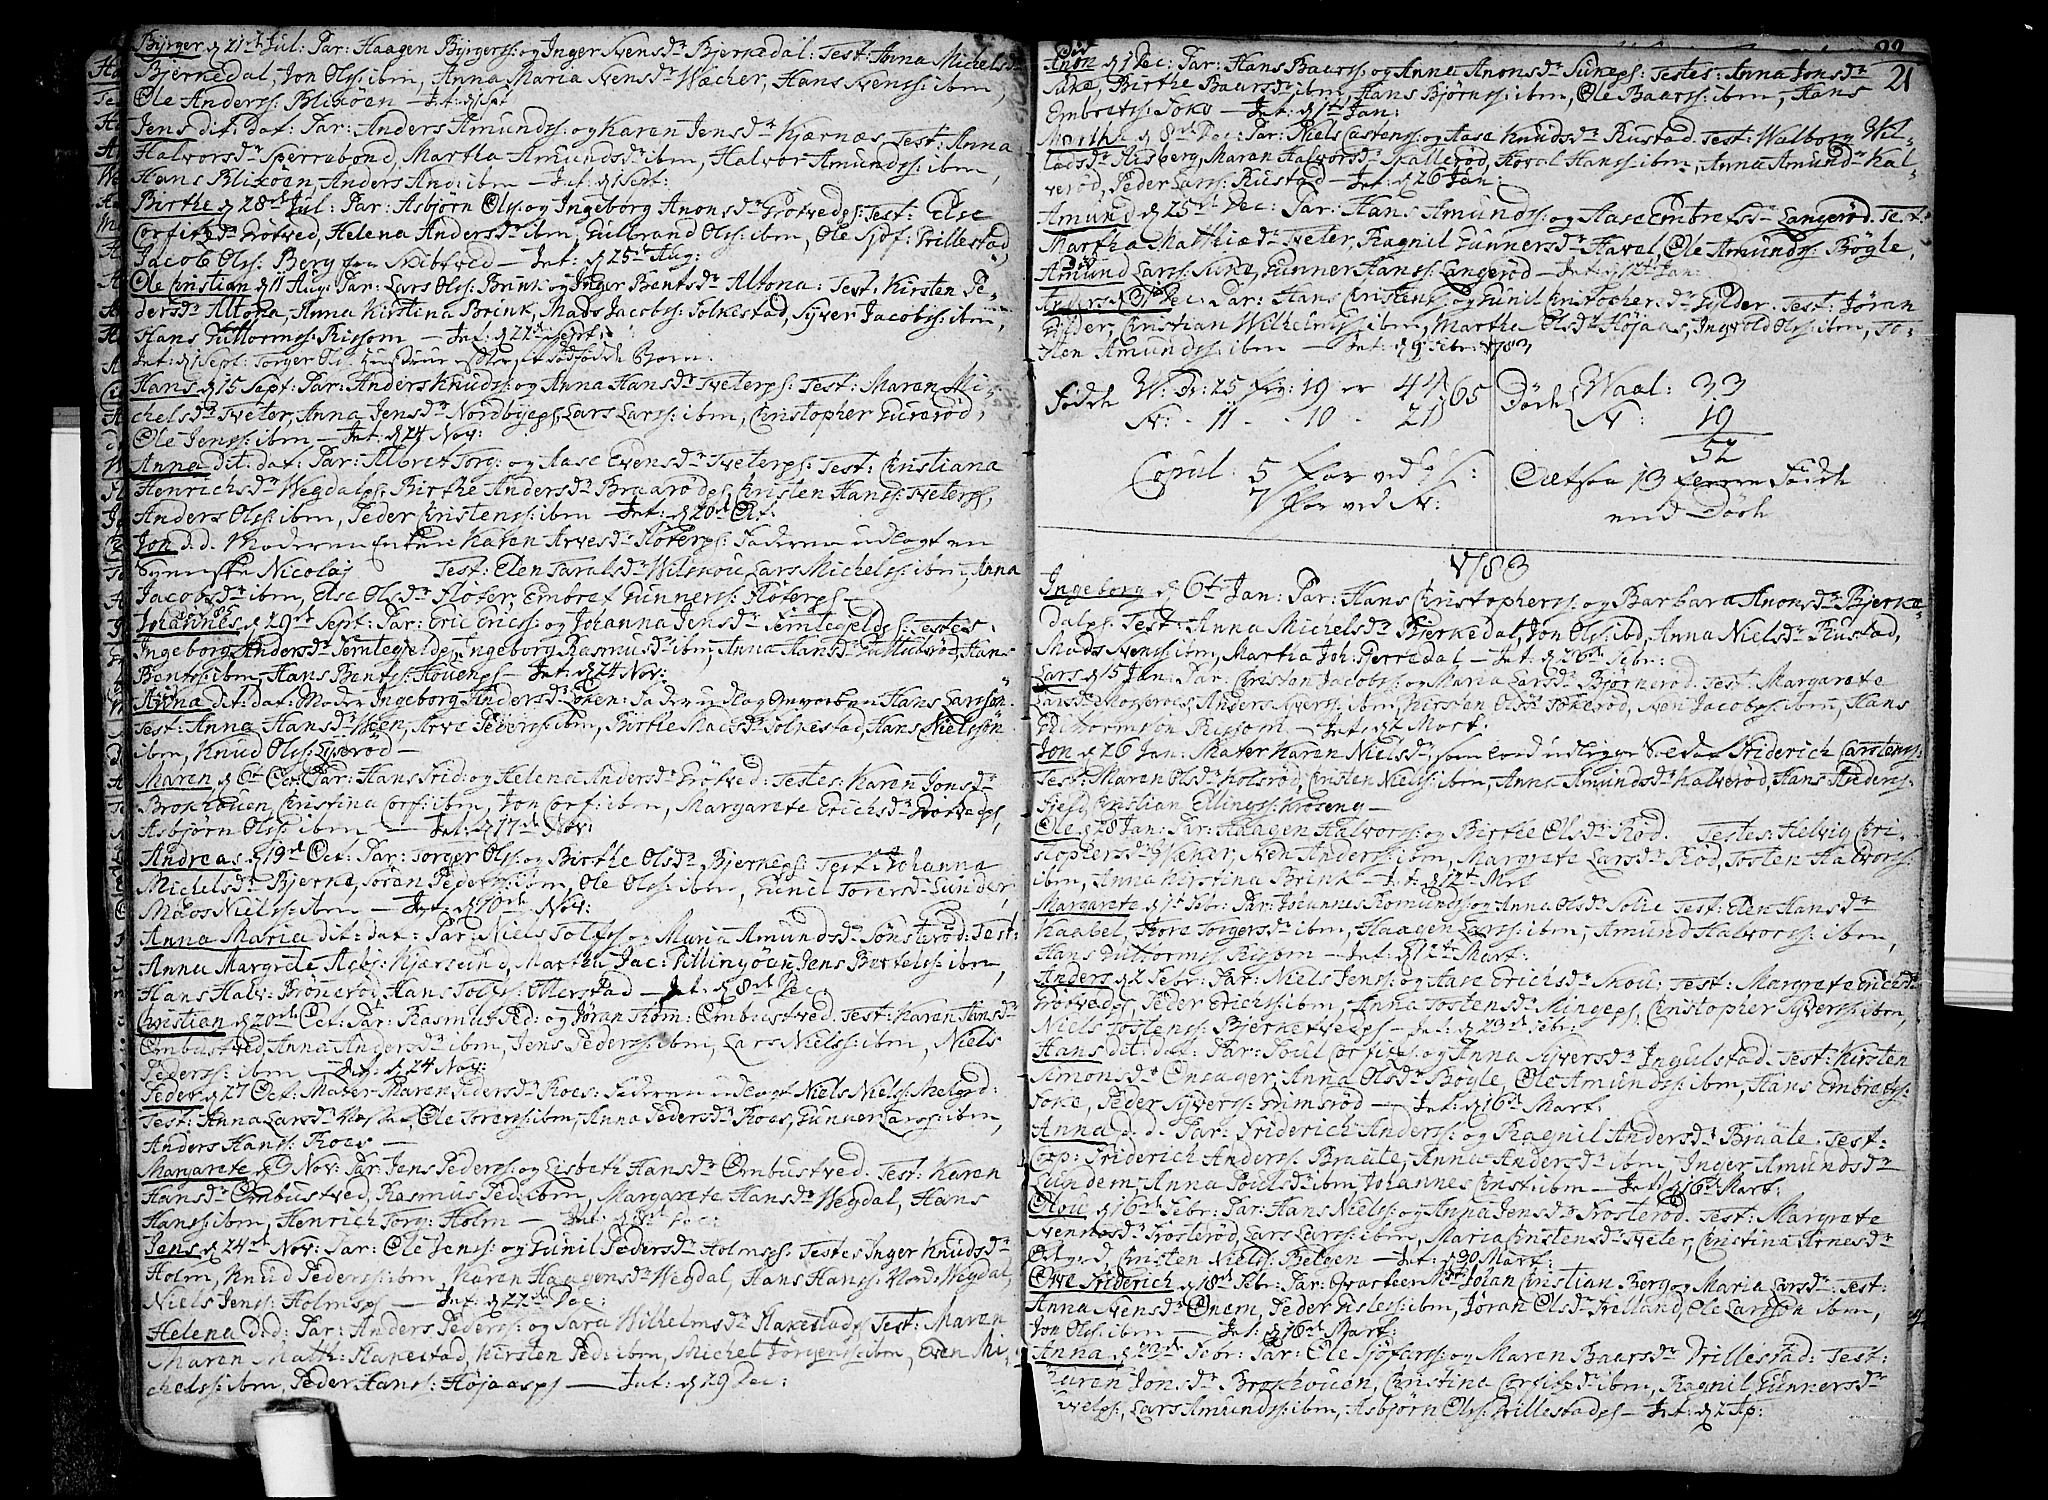 Byrger d 21de Jul: Par: Haagen Byrgerss: og Inger Svensdr Bjerkedal: Test: Anna Michelsdr
Bjerkedal, Jon Olss: ibm, Anna Maria Svensdr Wæcher, Hans Svenss: ibm,
Ole Anderss: Blixöen — Int: d 1 Sept
Jens dit: dat: Par: Anders Amundss: og Karen Jensdr Kjærnæs Test: Anna
Halvorsdr Sperrebond, Martha Amundsdr ibm, Halvor Amundss: ibm,
Hans Blixöen, Anders And: ibm — Int: d 1 Sept:
Birthe d 28de Jul: Par: Asbjørn Ols: og Ingeborg Anonsdr Grötvedps: Test: Else
Corfitsdr Grötved, Helena Andersdr ibm, Gulbrand Olss: ibm, Ole Sjöf: Trillestad,
Jacob Olss: Berg — Int: d 25de Aug:
Ole Christian d 11 Aug: Par: Lars Olss: Brink og Inger Bentsdr Altona: Test: Kirsten Pe-
dersdr Altona, Anna Kirstina Brink, Mads Jacobss: Solkestad, Syver Jacobss: ibm,
Hans Guttormss: Rissom — Int: d 22de Sept:
Hans d 15 Sept: Par: Anders Knuds: og Anna Hansdr Tveterps: Test: Maren Mi-
chelsdr Tveter, Anna Jensdr Nordbyeps, Lars Larss: ibm, Christopher Gureröd,
Ole Jenss: ibm — Int: d 24 Nov:
Anna dit: dat: Par: Albret Torg: og Aase Evensdr Tveterps: Test: Christiana
Henrichsdr Wegdalps: Birthe Andersdr Braarödps, Christen Hanss: Tveterps,
Anders Olss: ibm, Peder Christenss: ibm — Int: d 20de Oct:
Jon d.d. Moderen Enken Karen Arvesdr Flöterps: Faderen udlagt en
Svenske Nicolaj Test: Elen Taralsdr Wilskou, Lars Michelss: ibm, Anna
Jacobsdr ibm, Else Olsdr Flöter, Embret Gunnerss: Flöterps
Johannes d 29de Sept: Par: Eric Ericss: og Johanna Jensdr Temlegjeldps: Testes
Ingeborg Andersdr Temlegjeldps, Ingeborg Rasmusdr ibm, Anna Hansdr Guttulsröd, Hans
Bentss: ibm, Hans Bentss: Houenps — Int: d 24 Nov:
Anna dit: dat: Moder Ingeborg Andersdr Löken: Fader udlag Omvorben Hans Larssön
Test: Anna Hansdr Ween, Arve Pederss: ibm, Birthe Madsdr Solkestad, Hans Nielssön
ibm, Knud Olss: Egeröd —
Maren d 6te Oct: Par: Hans Frid: og Helena Andersdr Grötved: Testes: Karen Jonsdr
Brokhouen, Christina Corf: ibm, Jon Corf: ibm, Margarete Erichsdr Grötvedps,
Asbjørn Olss: ibm — Int: d 17de Nov:
Andreas d 19de Oct: Par: Torger Olss: og Birthe Olsdr Bjerkeps: Test: Johanna
Michelsdr Bjerke, Søren Pederss: ibm, Ole Olss: ibm, Gunil Toresdr Lunder,
Mads Nielss: ibm — Int: d 10de Nov:
Anna Maria dit: dat: Par: Niels Tolfss: og Maria Amundsdr Sönsteröd: Test:
Anna Margrete Aces: Kjærsund, Martha Jac: Pillingöen, Jens Bertelss: ibm,
Hans Halv: Bröneröd, Hans Tolfs: Ellerstad — Int: d 8de Dec:
Christian d 20de Oct: Par: Rasmus Ped: og Jöran Thom: Ombustved. Test: Karen Hansdr
Ombustved, Anna Andersdr ibm, Jens Pederss: ibm, Lars Nielss: ibm, Niels
Pederss: ibm — Int: d 24 Nov:
Peder d 27 Oct: Mater Maren Pedersdr Roes: Faderen udlagt Niels Nielss: Melgrd:
Test: Anna Larsdr, Ole Torerss: ibm, Anna Pedersdr Roes, Gunner Larss: ibm,
Anders Hanss: Roes —
Margarete d 3 Nov: Par: Jens Pederss: og Lisbeth Hansdr Ombustved. Test: Karen
Hansdr Ombustved, Rasmus Ped: ibm, Margarete Hansdr Wegdal, Hans
Hanss: ibm, Henrich Torg: Holm — Int: d 8de Dec:
Jens d 24de Nov: Par: Ole Jenss: og Gunil Pedersdr Holmsps: Testes Inger Knudsdr
Holm, Knud Pederss: ibm, Karen Haagensdr Wegdal, Hans Hanss: Nord: Wegdal,
Niels Jenss: Holmsps — Int: d 22de Dec:
Helena d.d: Par: Anders Pederss: og Sara Wilhelmsdr Rakestadps Test: Maren
Maren Math: Rakestad, Kirsten Peds: ibm, Michel Jörgenss: ibm, Even Mi-
chelss: ibm, Peder Hanss: Höjaasps — Int: d 29 Dec:
21
Anon d 1 Dec: Par: Hans Baarss: og Anna Anonsdr Suneps: Testes: Anna Jonsdr
Sake, Birthe Baarsdr ibm, Hans Björnss: ibm, Ole Baarss: ibm, Hans
Embretss: Soko — Int: d 1te Jan:
Martha d 8de Dec: Par: Niels Castenss: og Aase Knudsdr Rustad. Test: Walborg Wil-
ladsdr Aisberg, Maren Halvorsdr Spalleröd, Hovel Hanss: ibm, Anna Amundsdr Kal-
veröd, Peder Larss: Rustad — Int: d 26 Jan:
Amund d 25de Dec: Par: Hans Amundss: og Aase Embretsdr Langeröd. Test:
Martha Matthiædr Tveter, Ragnil Gunnersdr Haval, Ole Amundss: Bögle,
Amund Larss: Sune, Gunner Hanss: Langeröd — Int: d 12 Jan:
Anders d 31 Dec: Par: Hans Christens: og Gunil Christophersdr Gylder. Test: Jöran
Gylder, Christian Wilhelmss: ibm, Martha Olsdr Höjaas, Ingvold Olss: ibm, To-
sten Amundss: ibm — Int: d 9 Febr: 1783
Födde W: Dr: 25 Pig: 19 er 44 65 Döde Waal: 33
N: 11 - 10 - 21 N: 19
52
Copul: 5 Par ved V: Altsaa 13 flerre Födde
7 Par ved N: end Döde
1783
Ingeborg d 6te Jan: Par: Hans Christopherss: og Barbara Anonsdr Bjerke-
dalps Test: Anna Michelsdr Bjerkedal, Jon Olss: ibd, Anna Nielsdr Rustad,
Mads Svenss: ibm, Martha Joh: Bjerkedal — Int: d 26de Febr:
Lars d 15 Jan: Par: Christen Jacobss: og Maria Larsdr Björneröd. Test: Margarete
Larsdr Mosebroes, Anders Syverss: ibm, Kirsten Olsdr Tokeröd, Sven Jacobss: ibm, Hans
Guttormssön Rissom — Int: d 2 Mart:
Jon d 26 Jan: Mater Karen Nielsdr, som lod udlegge Soldat Friderich Carstenss:
Test: Maren Olsdr Holsröd, Christen Nielss: ibm, Anna Amundsdr Kalveröd, Hans Anderss:
Fjeld, Christian Ellingss: Kroseng —
Ole d 28 Jan: Par: Haagen Halvorss: og Birthe Olsdr Röd. Testes: Helvig Chri-
stophersdr Wæker, Sven Anderss: ibm, Margrete Larsdr Röd, Tosten Halvorss:
ibm, Anna Kirstina Brink — Int: d 12te Mrt
Margarete d 1te Febr: Par: Johannes Romunds: og Anna Olsdr Solie Test: Elen Hansdr
Kaabel, Tore Torgersdr ibm, Haagen Larss: ibm, Amund Halvorss: ibm,
Hans Guttormss: Rissom — Int: d 12te Mart:
Anders d 2 Febr: Par: Niels Jenss: og Aase Erichsdr Skou: Test: Margrete Erichsdr
Grötvedps, Peder Erichss: ibm, Anna Tostensdr Mingeps, Christopher Syverss: ibm,
Niels Tostenss: Bjerketvetps — Int: d 23de Febr:
Hans dit: dat: Par: Poul Corfitss: og Anna Syversdr Ingulstad. Test: Kirsten
Simonsdr Onsager, Anna Olsdr Bögle, Ole Amundss: ibm, Hans Embretss:
Soke, Peder Syverss: Grimsröd — Int: d 16de Mart:
Anna d.d. Par: Friderich Anderss: og Ragnil Andersdr Braate. Test:
Corp: Friderich Anderss: Braate, Anna Andersdr ibm, Inger Amundsdr
Lundem, Anna Poulsdr ibm Johannes Ernst ibm — Int: d 16de Mart:
Olou d 16de Febr: Par: Hans Nielss: og Anna Jensdr Trosteröd. Test: Margrete
Svennesdr Trosteröd, Lars Larss: ibm, Maria Christensdr Tveter, Christina Arnesdr
Ödegrd, Christen Nielss: Belgen — Int: d 30 Mart:
Ove Friderich d 18de Febr: Par: Qvarteer Mstr Johan Christian Berg og Maria Larsdr: Test:
Anna Svensdr Onem, Peder Gisless: ibm, Jöran Olsdr Trelland, Ole Larssön ibm,
Jon Olss: ibm — Int: d 16de Mart:
Anna d 23de Febr: Par: Ole Sjöfarss: og Maren Baarsdr Trillestad: Test:
Karen Jonsdr Brokhouen, Christina Corfitsdr ibm, Ragnil Gunnersdr
Lars Amundss: ibm, Asbjörn Olss: Trillestadps — Int: d 2 Ap: